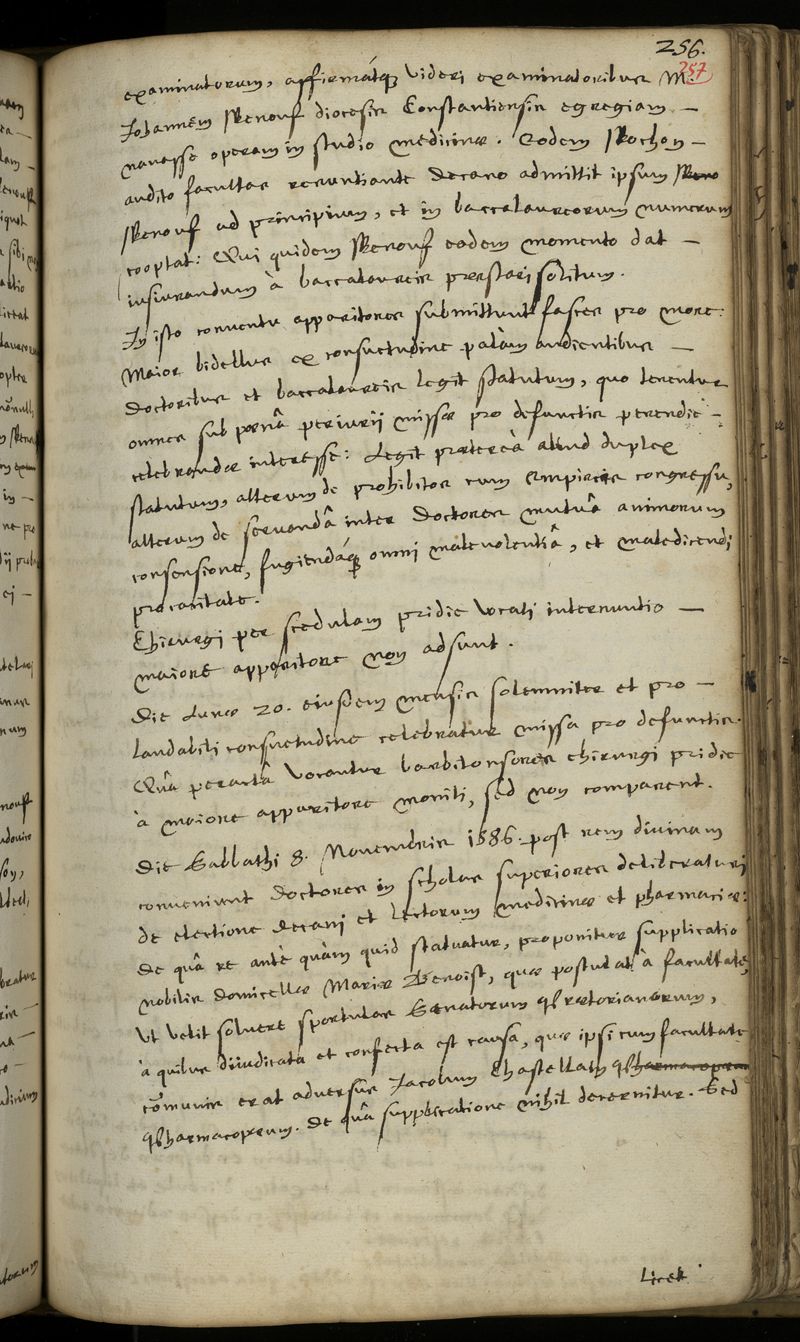 256.
257
examinatorum, affirmátq; videri examinatoribus M.
Johannem Skenouf diocesis Constantiensis egregiam —
navasse operam in studio medicinæ. Eodem Skochon —
audito facultas renuntiante decano admittit ipsum Skeno
Skenouf ad principium, et in baccalaureorum numerum
cooptat: Qui quidem Skenouf eodem momento dat —
iusiurandum à baccalaureis præstari solitum.
In isto conventu apparitores submittunt fasces pro more:
Maior bidellus ex consuetudine palàm audientibus —
doctoribus et baccalaureis legit statutum, quo tenentur
omnes sub pœnâ periurij missæ pro defunctis perendiè -
celebrandæ interesse: Legit prætereà aliud duplex
statutum, alterum de prohibitos cum empiricis congressu,
alterum de servandâ inter doctores mutuâ animorum
consensione, fugiendáq; omni malevolentiâ, et maledicendi
procacitate.
Chirurgi per scedulam pridie vocati internuntio —
maiore apparitore non adsunt.
Die Lunæ 20. eiusdem mensis solemniter et pro —
laudabili consuetudine celebratur missa pro defunctis.
Quâ peractâ vocantur barbitonsores chirurgi pridie
à maiore apparitore moniti, sed non comparent.
Die Sabbathi 8. Novembris 1586. post rem divinam
conveniunt doctores in scholas superiores deliberaturi
de electione decani et lectorum medicinæ et pharmaciæ:
de quâ re antè quàm quid statuatur, proponitur supplicatio
nobilis domicellæ Mariæ Benoist, quæ postulat à facultate,
ut velit solvere sportulas Senatorum prætorianorum,
à quibus diiudicata et confecta est causa, quæ ipsi cum facultate
cōmunis erat adversùs Jacobum Chastellain Pharmacopæum
Pharmacopæum. De quâ supplicatione nihil decernitur. Sed
Licet